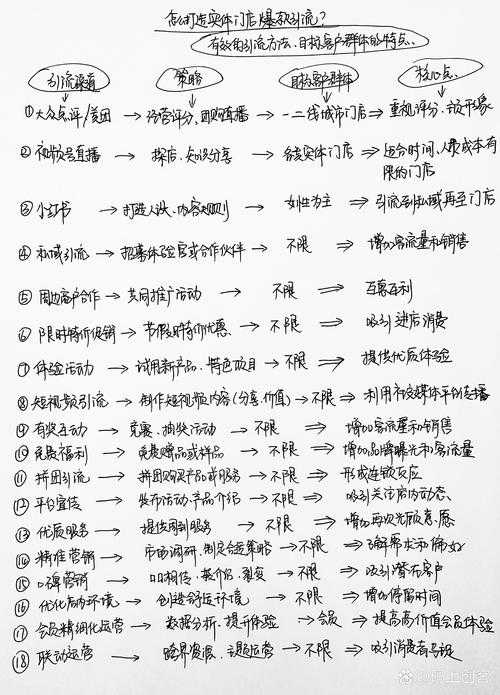 怎么打造实体门店爆款引流?
有效的引流方法、目标客户群体的特点、
引流渠道 策略 目标客户群体 核心点、
①大众点评/美团 → 运营评分、团购直播 → 一二线城市门店 ⇒ 重视评分、门店形象
②视频号直播 → 探店、知识分享 → 各类实体门店 ⇒ 适合时间、人员成本有
限的门店
③小红书 → 打造人设、内容规则 → 女性为主 ⇒ 引流到私域再至门店
④私域引流 → 招募体验官或合作伙伴 → 不限 ⇒ 增加客流量和销售
⑤周边商户合作 → 共同推广活动 → 不限 ⇒ 互惠互利
⑥限时特价促销 → 节假日特价优惠、→ 不限 ⇒ 吸引进店消费
⑦体验活动 → 试用新产品、特色项目 → 不限 ⇒ 提供优质体验
⑧短视频引流 → 制作短视频内容(分享价值) → 不限 ⇒ 利用社交媒体平台传播
⑨有奖互动 → 竞赛、抽奖活动 → 不限 ⇒ 增加客流量和销售
⑩免费福利 → 免费赠品或样品 → 不限 ⇒ 增加品牌曝光和客流量
⑪拼团引流 → 拼团购买产品或服务 → 不限 ⇒ 形成连锁反应
⑫平台宣传 → 发布活动、产品介绍 → 不限 ⇒ 吸引关注店内动态、
⑬优质服务 → 提供周到服务 → 不限 ⇒ 增加再次光顾意愿
⑭精准营销 → 市场调研、制定合适策略 → 不限 ⇒ 了解需求和偏好
⑮口碑营销 → 口口相传、转介绍、裂变 → 不限 ⇒ 吸引潜在客户
⑯优化店内环境 → 创造舒适环境 → 不限 ⇒ 增加停留时间
⑰会员精细化运营 → 数据分析、提升体验 → 会员 ⇒ 提高高价值会员体验
⑱联动运营 → 跨界资源、主题运营 → 不限 ⇒ 吸引消费者